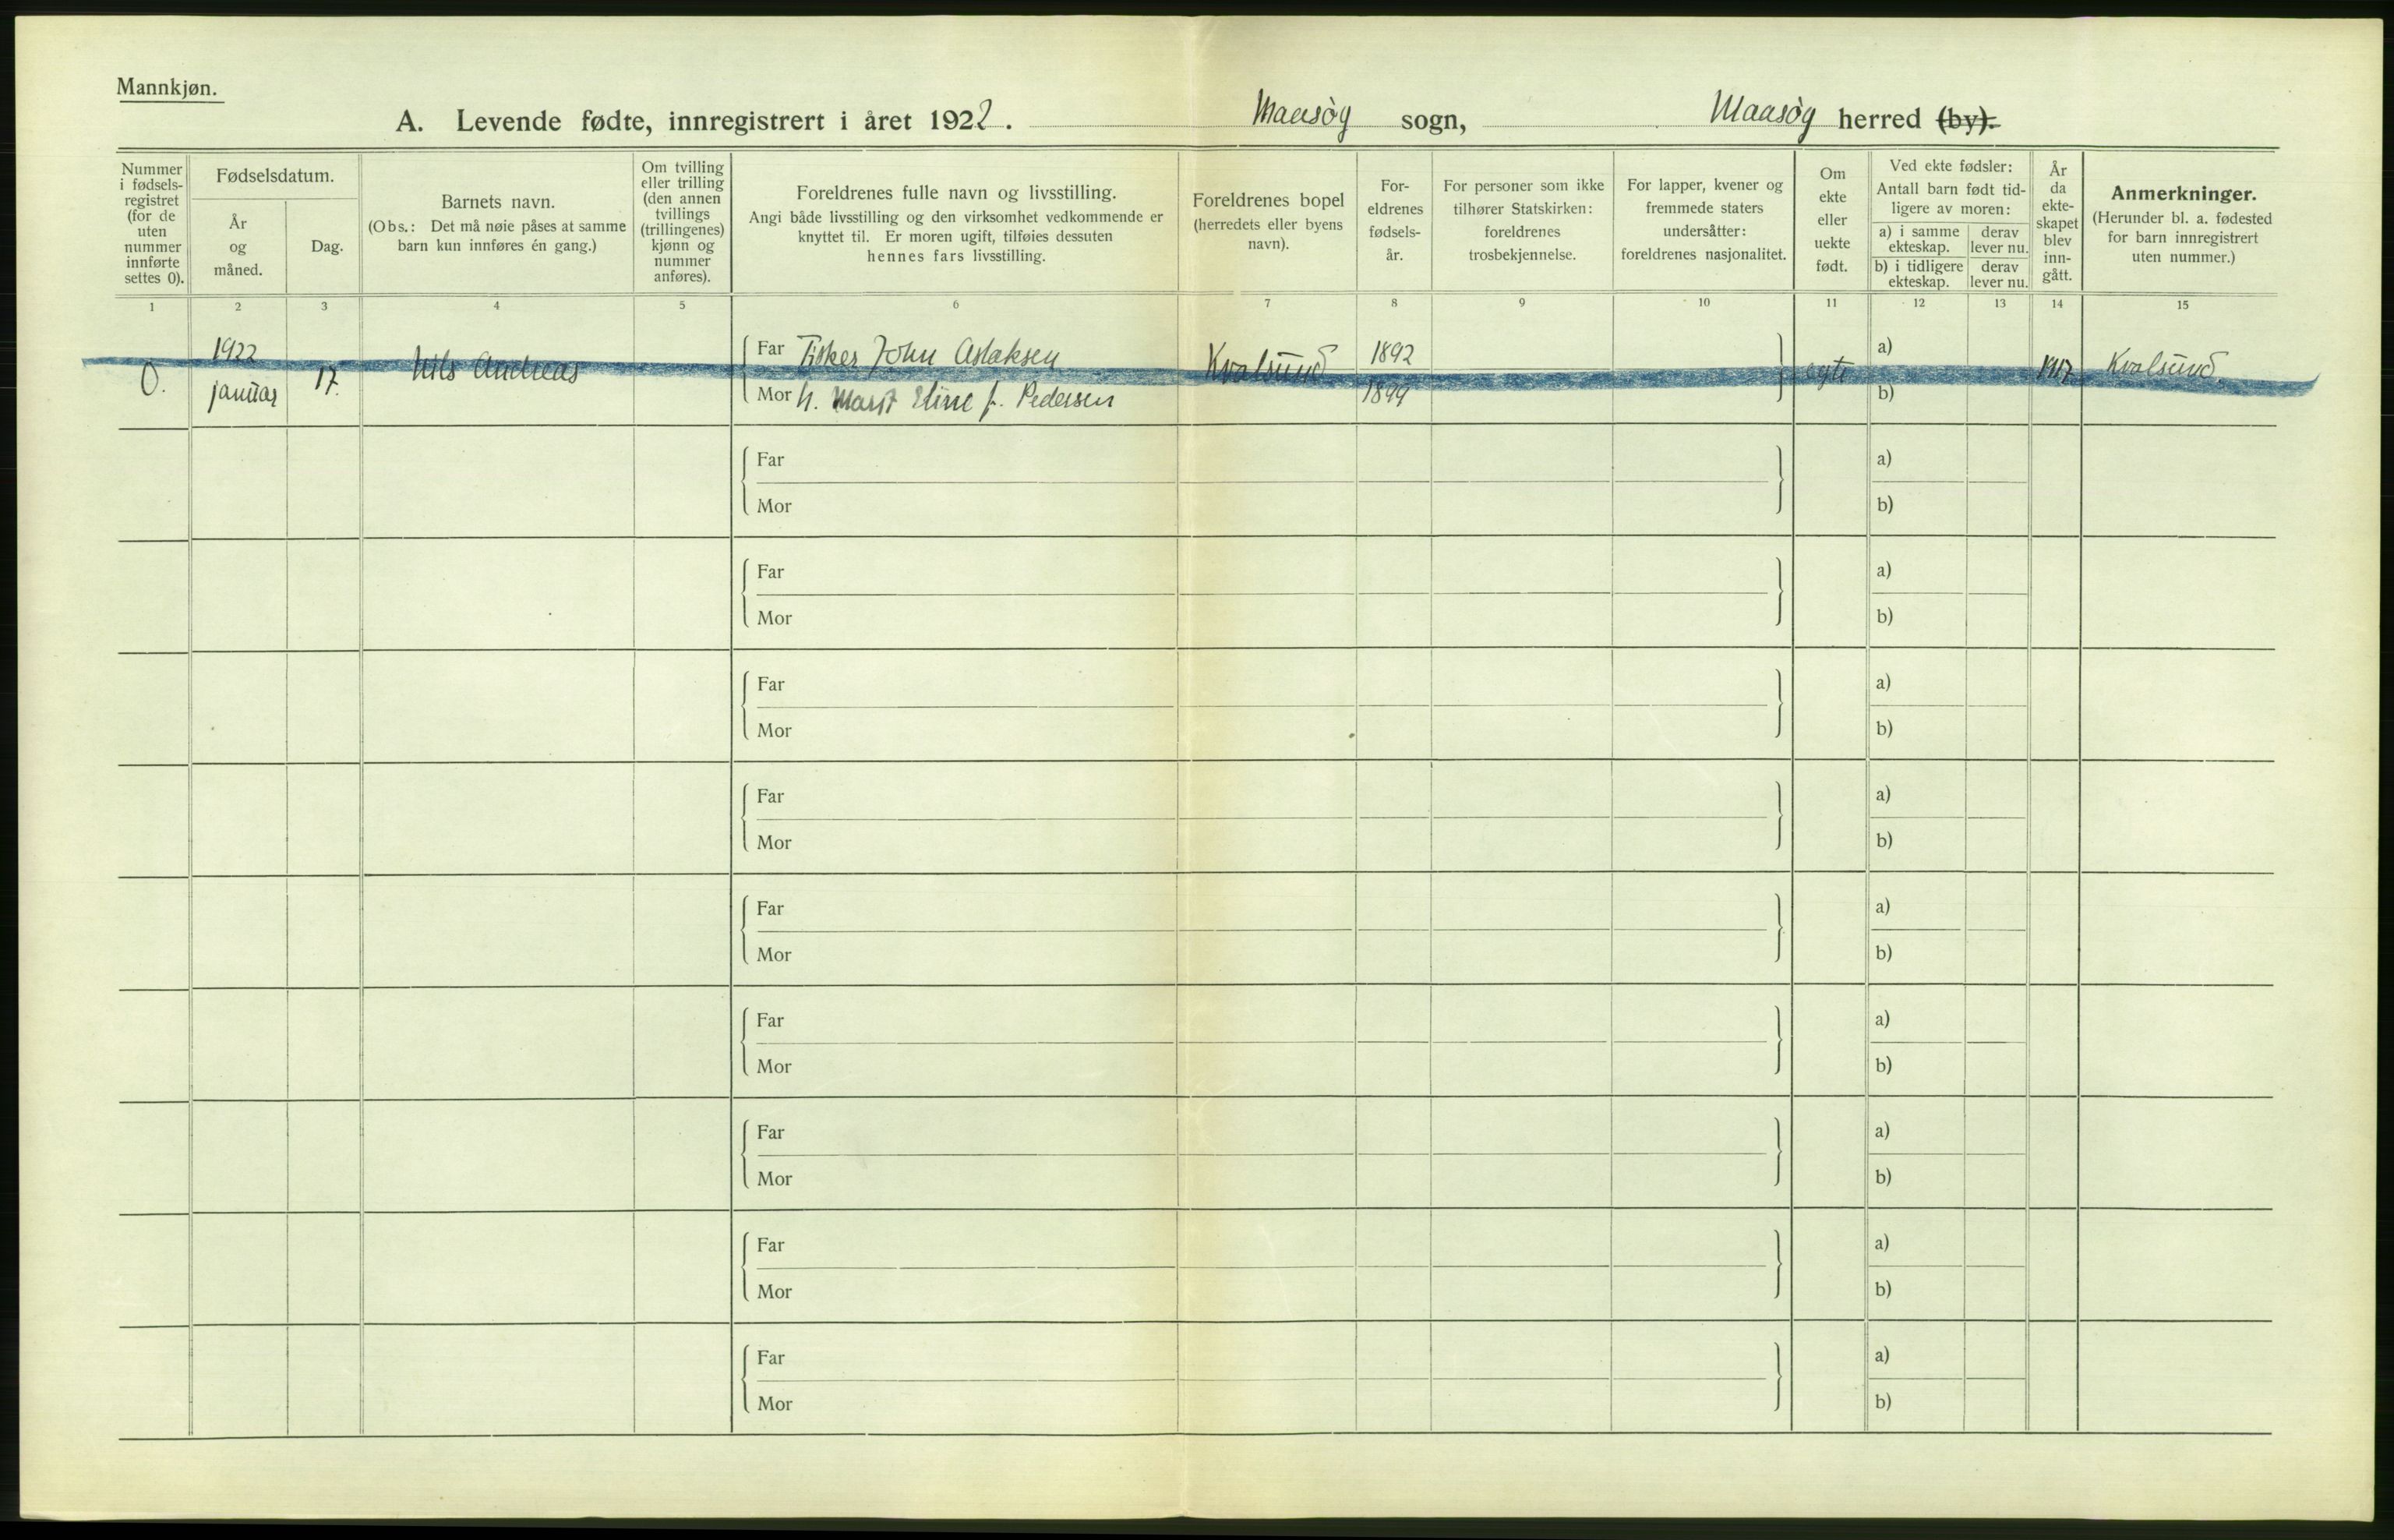 Mannkjøn.
A. Levende fødte, innregistrert i året 1922. Maasøy sogn, Maasøy herred (by).
Nummer i fødsels-registret (for de uten nummer innførte settes 0).
Fødselsdatum.
År og måned.
Dag.
Barnets navn.
(Obs.: Det må nøie påses at samme barn kun innføres én gang.)
Om tvilling eller trilling (den annen tvillings (trillingenes) kjønn og nummer anføres).
Foreldrenes fulle navn og livsstilling.
Angi både livsstilling og den virksomhet vedkommende er knyttet til. Er moren ugift, tilføies dessuten hennes fars livsstilling.
Foreldrenes bopel (herredets eller byens navn).
For-eldrenes fødsels-år.
For personer som ikke tilhører Statskirken: foreldrenes trosbekjennelse.
For lapper, kvener og fremmede staters undersåtter: foreldrenes nasjonalitet.
Om ekte eller uekte født.
Ved ekte fødsler:
Antall barn født tid-ligere av moren:
a) i samme ekteskap.
derav lever nu.
b) i tidligere ekteskap.
derav lever nu.
År da ekte-skapet blev inn-gått.
Anmerkninger.
(Herunder bl. a. fødested for barn innregistrert uten nummer.)
1 2 3 4 5 6 7 8 9 10 11 12 13 14 15
0. 1922 januar 17. Nils Andreas
Far Fisker John Aslaksen
Mor h. Marit Eline f. Pedersen
Kvalsund 1892
1899
egte
a)
b)
1917 Kvalsund.
Far a)
Mor b)
Far a)
Mor b)
Far a)
Mor b)
Far a)
Mor b)
Far a)
Mor b)
Far a)
Mor b)
Far a)
Mor b)
Far a)
Mor b)
Far a)
Mor b)